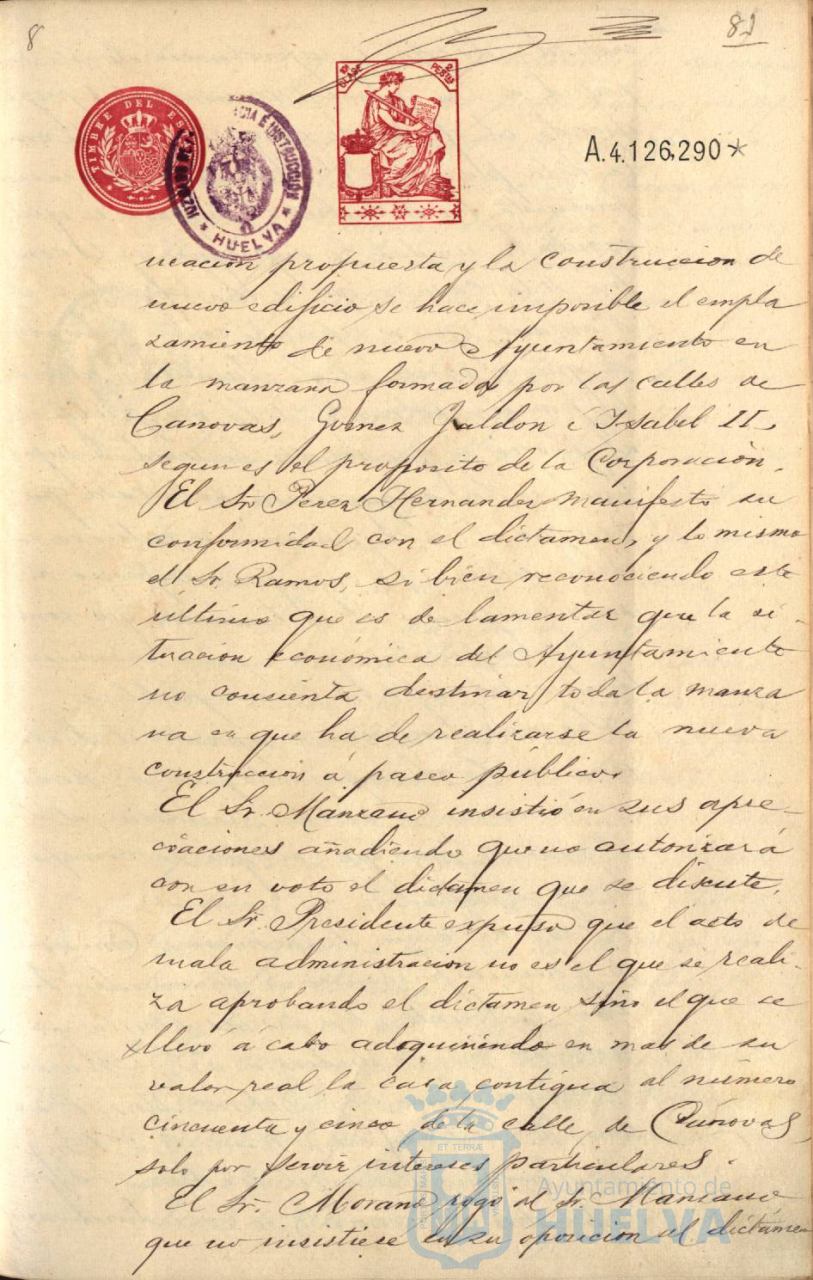 8
81
TIMBRE DEL ES
CIA É INSTRUCCIÓN
HUELVA
CLASE
2 PESTAS
A.4.126,290*
neación propuesta y la construccion de
nuevo edificio, se hace imposible el empla
zamiento de nuevo Ayuntamiento en
la manzana formada por las calles de
Canovas, Gomez Jaldon é Ysabel II,
segun es el proposito de la Corporación.
El Sr Perez Hernandez manifestó su
conformidad con el dictamen, y lo mismo
el Sr. Ramos, si bien reconociendo este
último que es de lamentar que la si-
tuacion económica del Ayuntamiento
no consienta destinar toda la manza
na en que ha de realizarse la nueva
construcción á paseo público.
El Sr. Manzano insistió en sus apre-
ciaciones añadiendo que no autorizará
con su voto el dictamen que se discute.
El Sr. Presidente expuso que el acto de
mala administracion no es el que se reali-
za aprobando el dictamen, sino el que se
llevó á cabo adoquiriendo en mas de su
valor real la casa contigua al número
cincuenta y cinco de la calle de Cánovas,
solo por servir intereses particulares.
El Sr. Moraño rogó al Sr. Manzano
que no insistiese en su oposición al dictámen
ET TERRÆ
Ayuntamiento de
HUELVA